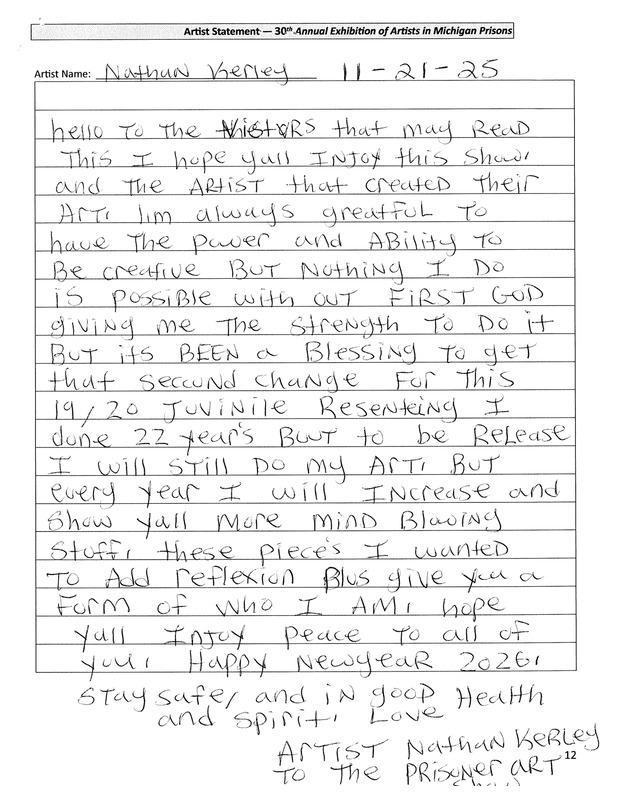 Artist Statement — 30th Annual Exhibition of Artists in Michigan Prisons
Artist Name: Nathan Kerley 11-21-25
hello To The that may Read
This I hope yall INJOY this show.
and The ARTIST that created Their
Art. Iim always greatful To
have The power and ABility To
Be creative BuT Nothing I Do
is possible with out FiRST GOD
giving me The strength To Do it
BuT its BEEN a Blessing To get
that seccund change For This
19/20 JuviNile Resenteing I
done 22 year's BuuT to be ReLease
I will STill Do my ArT. BuT
every year I will Increase and
show yall More MiND Blawing
stuff. these piece's I wanted
To Add reflexion Plus give you a
Form of who I AM. hope
yall INJOY peace To all of
you. Happy NewyeaR 2026.
Stay safe, and in good Health
and spirit. Love
ARTIST Nathan KeRLey
12
To The PRISONER ART
Show